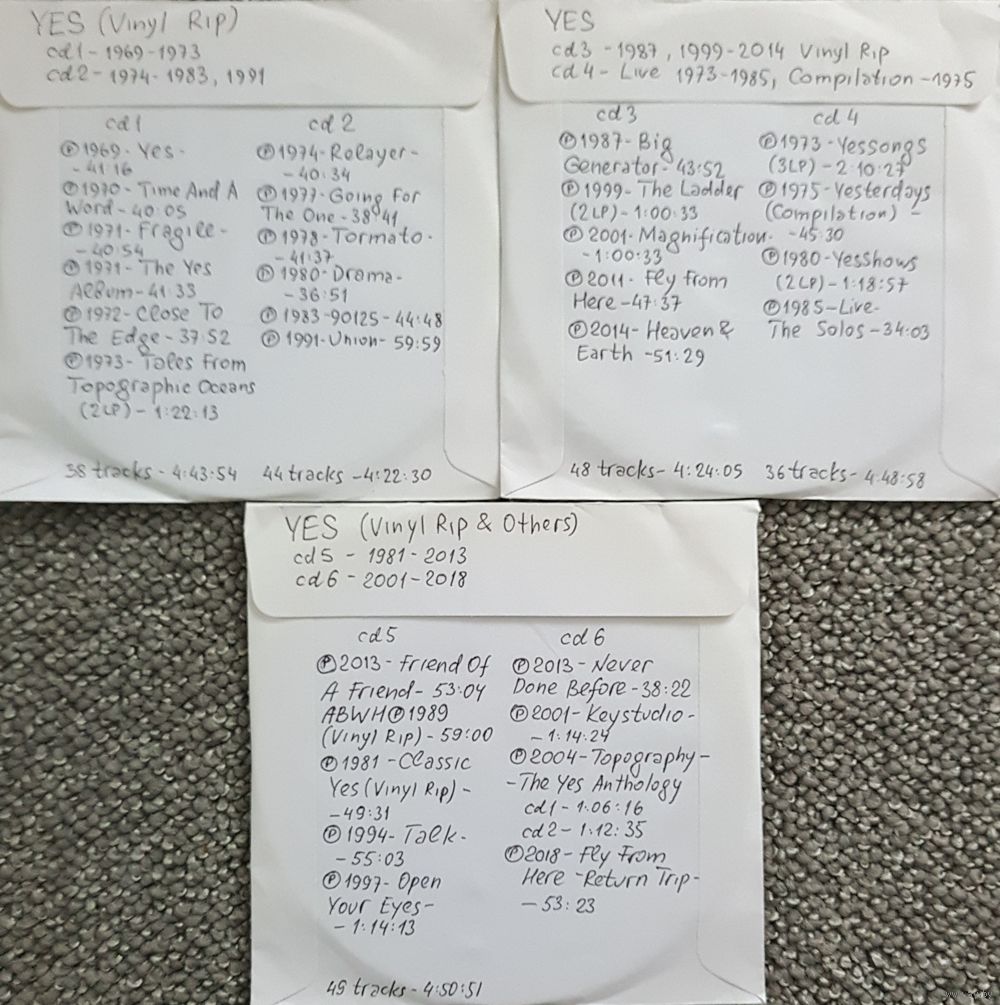 YES (Vinyl Rip)
cd1 - 1969-1973
cd2 - 1974-1983, 1991
cd1
℗1969-Yes-
-41:16
℗1970-Time And A
Word-40:05
℗1971-Fragile-
-40:54
℗1971-The Yes
Album-41:33
℗1972-Close To
The Edge-37:52
℗1973-Tales From
Topographic Oceans
(2LP)-1:22:13
38 tracks-4:43:54
cd2
℗1974-Relayer-
-40:34
℗1977-Going For
The One-38:41
℗1978-Tormato-
-41:37
℗1980-Drama-
-36:51
℗1983-90125-44:48
℗1991-Union-59:59
44 tracks-4:22:30
YES
cd3 -1987, 1999-2014 Vinyl Rip
cd4 - Live 1973-1985, Compilation-1975
cd3
℗1987-Big
Generator-43:52
℗1999-The Ladder
(2LP)-1:00:33
℗2001-Magnification-
-1:00:33
℗2011-Fly From
Here-47:37
℗2014-Heaven &
Earth-51:29
48 tracks-4:24:05
cd4
℗1973-Yessongs
(3LP)-2:10:27
℗1975-Yesterdays
(Compilation)-
-45:30
℗1980-YesShows
(2LP)-1:18:57
℗1985-Live-
The Solos-34:03
36 tracks-4:48:58
YES (Vinyl Rip & Others)
cd5 - 1981-2013
cd6 - 2001-2018
cd5
℗2013-Friend Of
A Friend-53:04
ABWH℗1989
(Vinyl Rip)-59:00
℗1981-Classic
Yes(Vinyl Rip)-
-49:31
℗1994-Talk-
-55:03
℗1997-Open
Your Eyes-
-1:14:13
49 tracks-4:50:51
cd6
℗2013-Never
Done Before-38:22
℗2001-Keystudio-
-1:14:24
℗2004-Topography-
-The Yes Anthology
cd1-1:06:16
cd2-1:12:35
℗2018-Fly From
Here-Return Trip-
-53:23